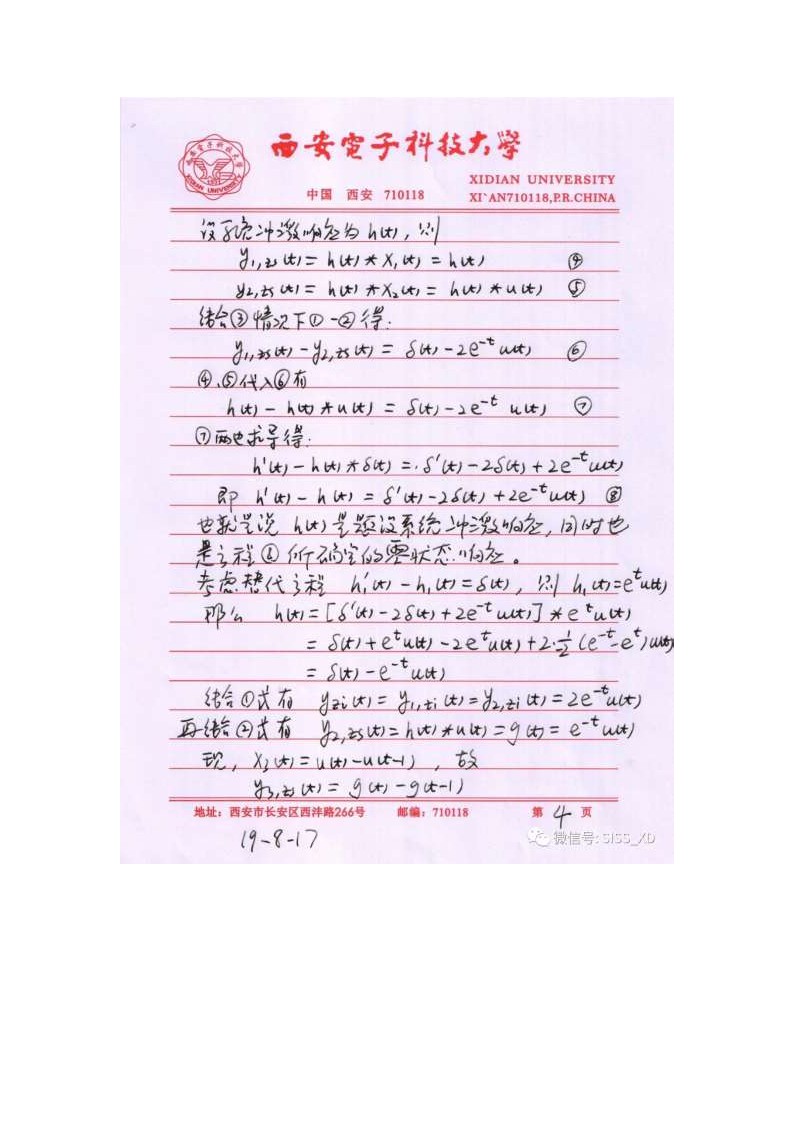 西安電子科技大學
XIDIAN UNIVERSITY
中国 西安 710118
XI`AN710118,P.R.CHINA
设系统冲激响应为 h(t), 则
y₁,zs(t) = h(t) * x₁(t) = h(t) ④
y₂,zs(t) = h(t) * x₂(t) = h(t) * u(t) ⑤
结合③情况下①-②得:
y₁,zs(t) - y₂,zs(t) = δ(t) - 2e⁻ᵗ u(t) ⑥
④、⑤代入⑥有
h(t) - h(t) * u(t) = δ(t) - 2e⁻ᵗ u(t) ⑦
⑦两边求导得:
h'(t) - h(t) * δ(t) = δ'(t) - 2δ(t) + 2e⁻ᵗu(t)
即 h'(t) - h(t) = δ'(t) - 2δ(t) + 2e⁻ᵗu(t) ⑧
也就是说 h(t) 是题设系统冲激响应, 同时也
是方程⑧所确定的零状态响应。
考虑替代方程 h₁'(t) - h₁(t) = δ(t), 则 h₁(t) = eᵗu(t)
那么 h(t) = [δ'(t) - 2δ(t) + 2e⁻ᵗu(t)] * eᵗu(t)
= δ(t) + eᵗu(t) - 2eᵗu(t) + 2·½(e⁻ᵗ - eᵗ)u(t)
= δ(t) - e⁻ᵗu(t)
结合①式有 yzi(t) = y₁,zi(t) = y₂,zi(t) = 2e⁻ᵗu(t)
再结合②式有 y₂,zs(t) = h(t) * u(t) = g(t) = e⁻ᵗu(t)
现, x₃(t) = u(t) - u(t-1), 故
y₃,zs(t) = g(t) - g(t-1)
地址：西安市长安区西沣路266号 邮编：710118 第 4 页
19-8-17
微信号: SISS_XD